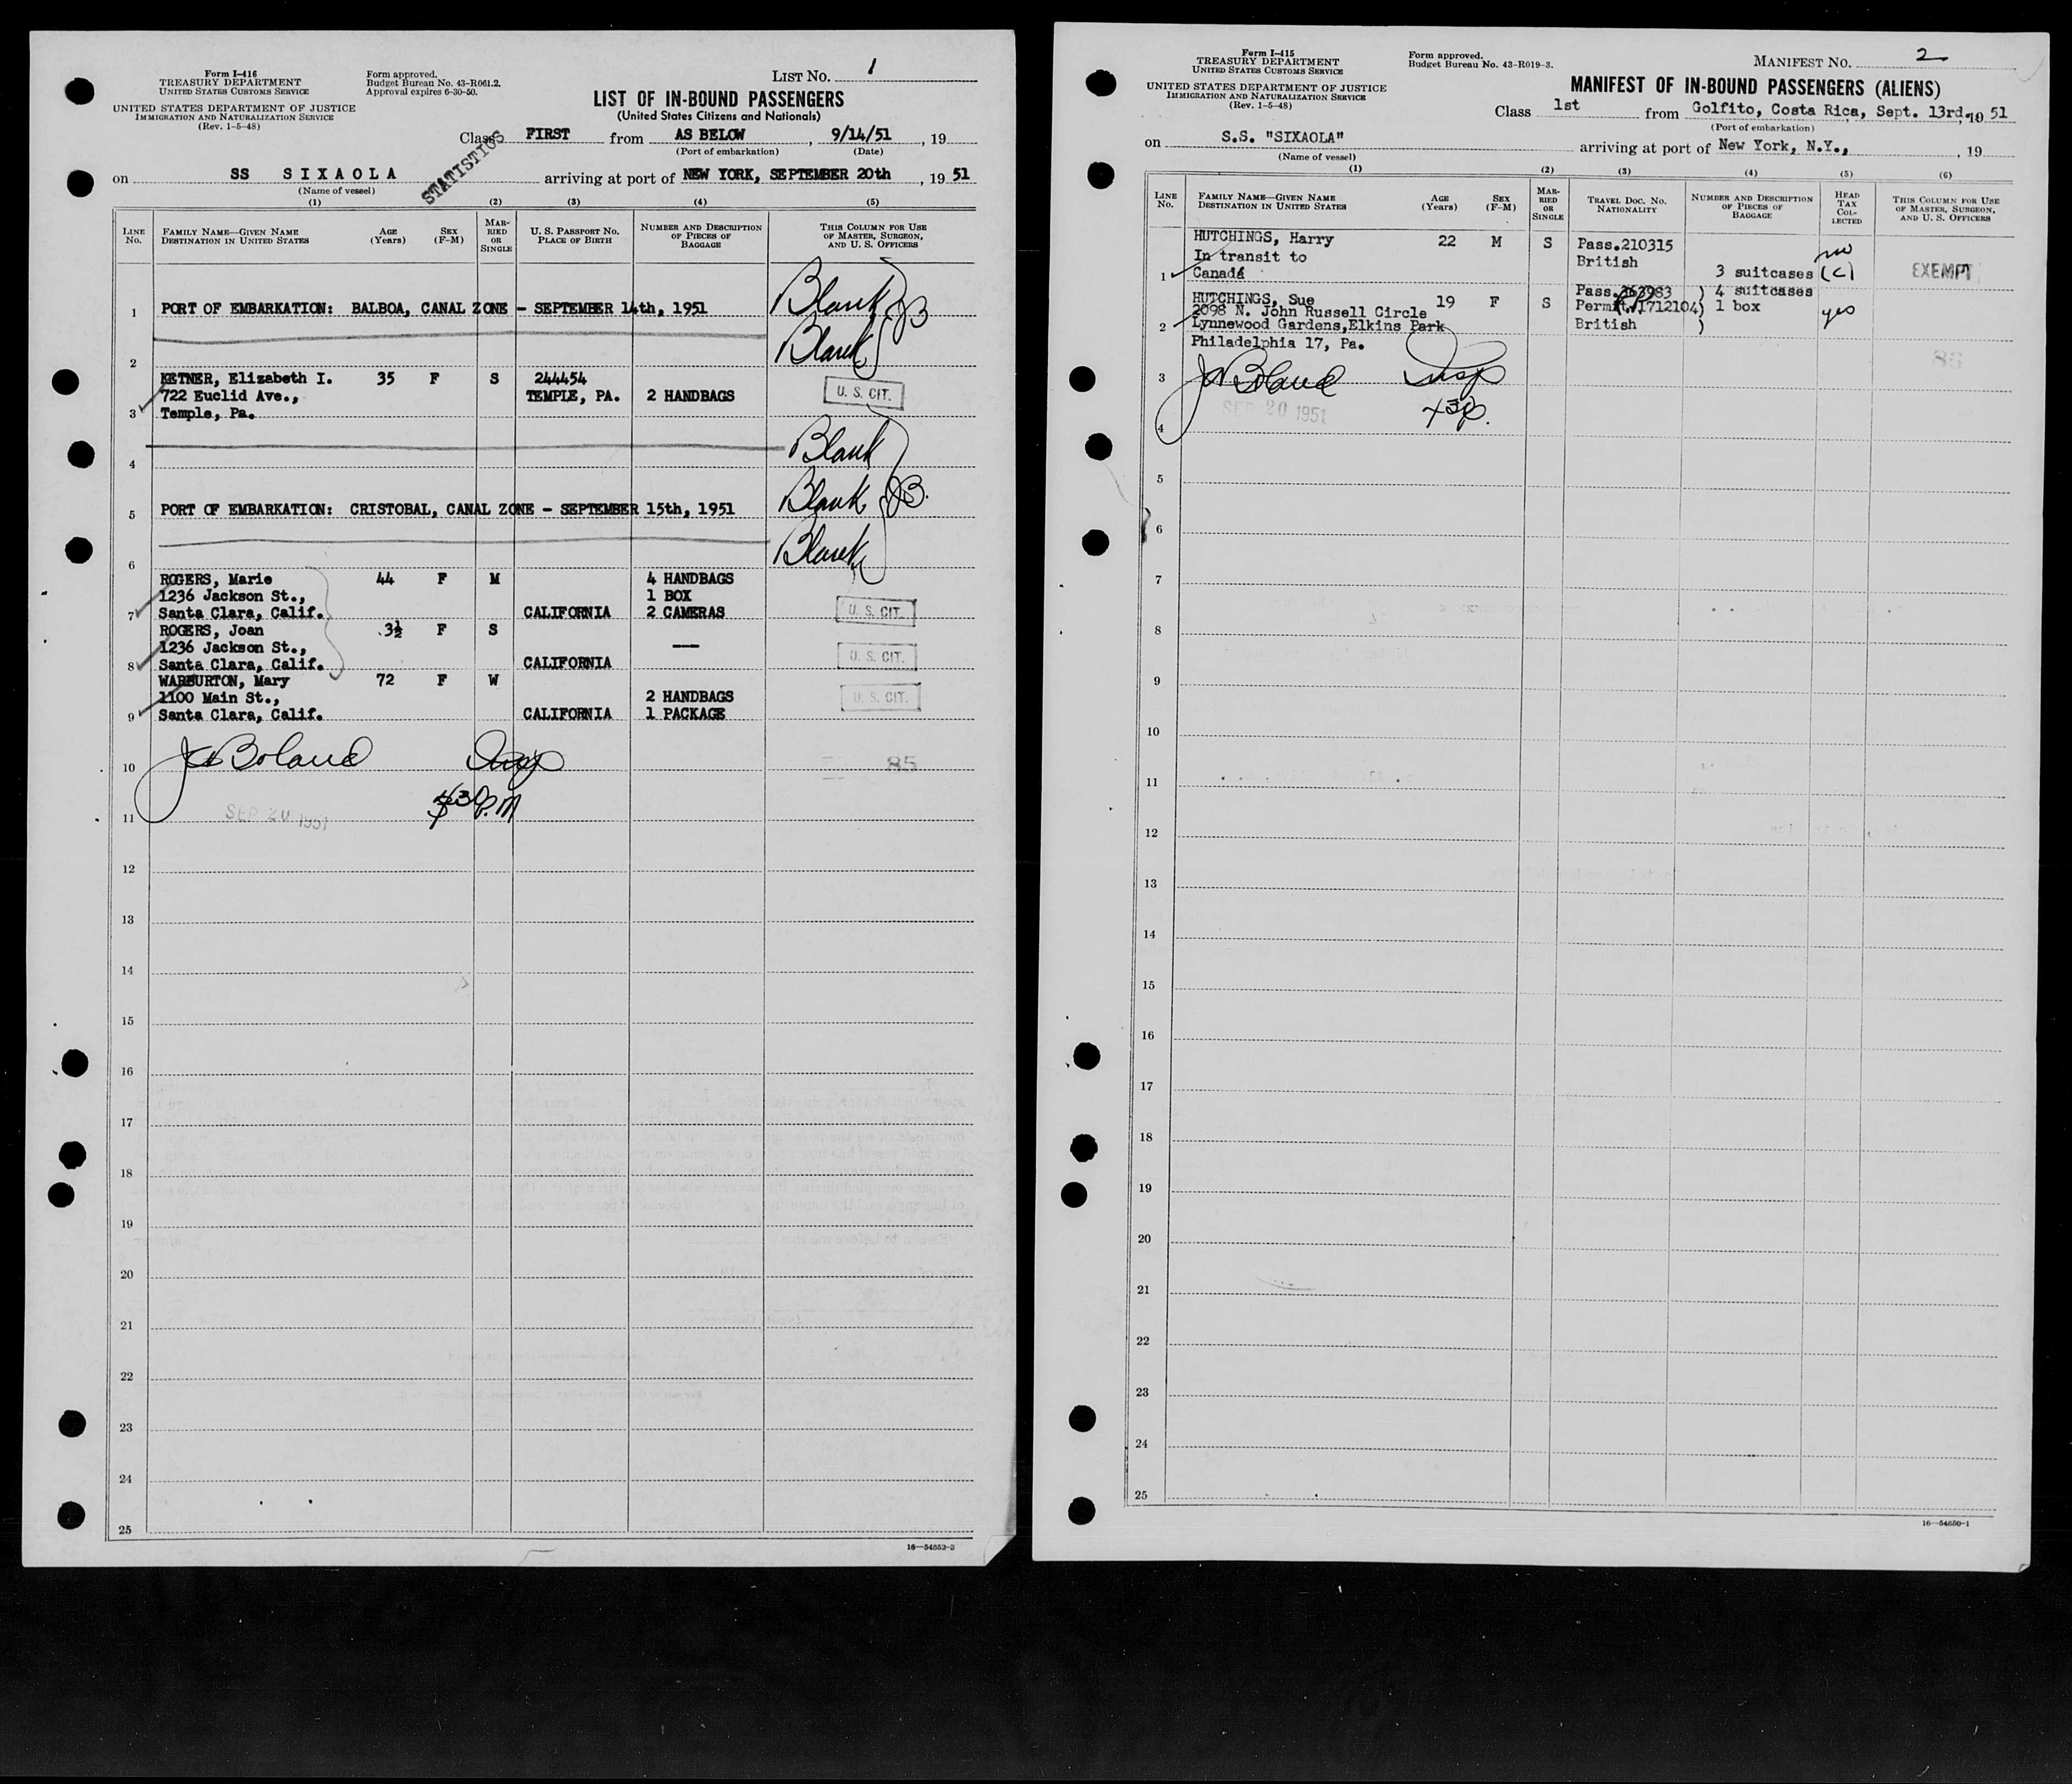 Form I-416
TREASURY DEPARTMENT
UNITED STATES CUSTOMS SERVICE
UNITED STATES DEPARTMENT OF JUSTICE
IMMIGRATION AND NATURALIZATION SERVICE
(Rev. 1-5-48)
Form approved.
Budget Bureau No. 43-R061.2.
Approval expires 6-30-50.
LIST NO. 1
LIST OF IN-BOUND PASSENGERS
(United States Citizens and Nationals)
Class FIRST from AS BELOW, 9/14/51, 19
(Port of embarkation) (Date)
STATISTICS
on SS SIXAOLA arriving at port of NEW YORK, SEPTEMBER 20th, 19 51
(Name of vessel)
(1) (2) (3) (4) (5)
LINE NO. FAMILY NAME—GIVEN NAME DESTINATION IN UNITED STATES AGE (Years) SEX (F-M) MARRIED OR SINGLE U. S. PASSPORT NO. PLACE OF BIRTH NUMBER AND DESCRIPTION OF PIECES OF BAGGAGE THIS COLUMN FOR USE OF MASTER, SURGEON, AND U. S. OFFICERS
1 PORT OF EMBARKATION: BALBOA, CANAL ZONE - SEPTEMBER 14th, 1951 Blank JB
2 Blank
KETNER, Elizabeth I. 35 F S 244454
722 Euclid Ave., TEMPLE, PA. 2 HANDBAGS U. S. CIT.
3 Temple, Pa.
4 Blank
5 PORT OF EMBARKATION: CRISTOBAL, CANAL ZONE - SEPTEMBER 15th, 1951 Blank JB.
6 Blank
ROGERS, Marie 44 F M 4 HANDBAGS
1236 Jackson St., 1 BOX
7 Santa Clara, Calif. CALIFORNIA 2 CAMERAS U. S. CIT.
ROGERS, Joan 3½ F S
1236 Jackson St., ---
8 Santa Clara, Calif. CALIFORNIA U. S. CIT.
WARBURTON, Mary 72 F W
1100 Main St., 2 HANDBAGS U. S. CIT.
9 Santa Clara, Calif. CALIFORNIA 1 PACKAGE
10 J Boland Insp 85
11 SEP 20 1951 430 P.M
12
13
14
15
16
17
18
19
20
21
22
23
24
25
16—54652-3
Form I-415
TREASURY DEPARTMENT
UNITED STATES CUSTOMS SERVICE
UNITED STATES DEPARTMENT OF JUSTICE
IMMIGRATION AND NATURALIZATION SERVICE
(Rev. 1-5-48)
Form approved.
Budget Bureau No. 43-R019-3.
MANIFEST NO. 2
MANIFEST OF IN-BOUND PASSENGERS (ALIENS)
Class 1st from Golfito, Costa Rica, Sept. 13rd, 19 51
(Port of embarkation)
on S.S. "SIXAOLA" arriving at port of New York, N.Y., , 19
(Name of vessel)
(1) (2) (3) (4) (5) (6)
LINE NO. FAMILY NAME—GIVEN NAME DESTINATION IN UNITED STATES AGE (Years) SEX (F-M) MARRIED OR SINGLE TRAVEL DOC. NO. NATIONALITY NUMBER AND DESCRIPTION OF PIECES OF BAGGAGE HEAD TAX COLLECTED THIS COLUMN FOR USE OF MASTER, SURGEON, AND U. S. OFFICERS
HUTCHINGS, Harry 22 M S Pass.210315
In transit to British no
1 Canada 3 suitcases (c) EXEMPT
HUTCHINGS, Sue 19 F S Pass.363983 ) 4 suitcases
2098 N. John Russell Circle Permit.I712104) 1 box yes
2 Lynnewood Gardens,Elkins Park British )
Philadelphia 17, Pa. 85
3 J Boland Insp
SEP 20 1951 430p.
4
5
6
7
8
9
10
11
12
13
14
15
16
17
18
19
20
21
22
23
24
25
16—54650-1